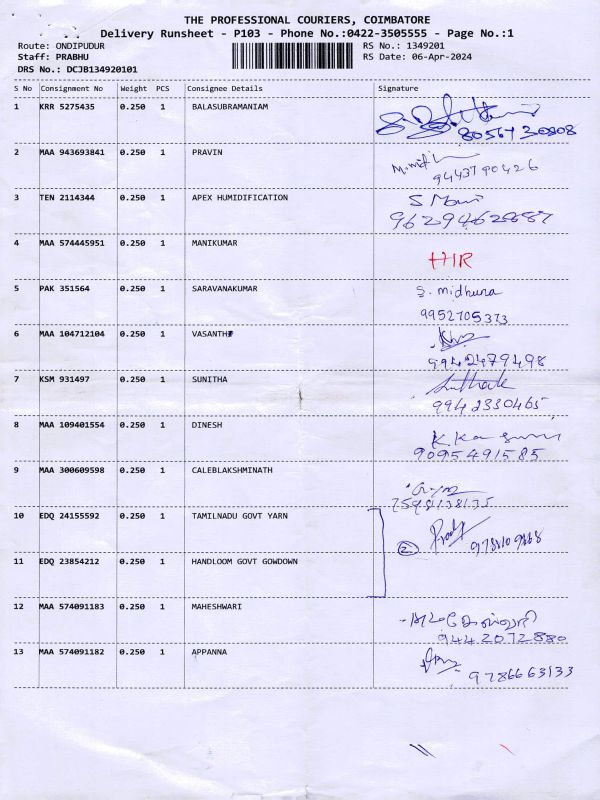 THE PROFESSIONAL COURIERS, COIMBATORE
Delivery Runsheet - P103 - Phone No.:0422-3505555 - Page No.:1
Route: ONDIPUDUR RS No.: 1349201
Staff: PRABHU RS Date: 06-Apr-2024
DRS No.: DCJB134920101
S No Consignment No Weight PCS Consignee Details Signature
1 KRR 5275435 0.250 1 BALASUBRAMANIAM
80567 30808
2 MAA 943693841 0.250 1 PRAVIN
9443790426
3 TEN 2114344 0.250 1 APEX HUMIDIFICATION S Mani
9629462687
4 MAA 574445951 0.250 1 MANIKUMAR HIR
5 PAK 351564 0.250 1 SARAVANAKUMAR S. midhuna
9952705373
6 MAA 104712104 0.250 1 VASANTH
9942479498
7 KSM 931497 0.250 1 SUNITHA
9942330465
8 MAA 109401554 0.250 1 DINESH
9095491585
9 MAA 300609598 0.250 1 CALEBLAKSHMINATH
7598138135
10 EDQ 24155592 0.250 1 TAMILNADU GOVT YARN
2
11 EDQ 23854212 0.250 1 HANDLOOM GOVT GOWDOWN
12 MAA 574091183 0.250 1 MAHESHWARI
9442072880
13 MAA 574091182 0.250 1 APPANNA
9786663133